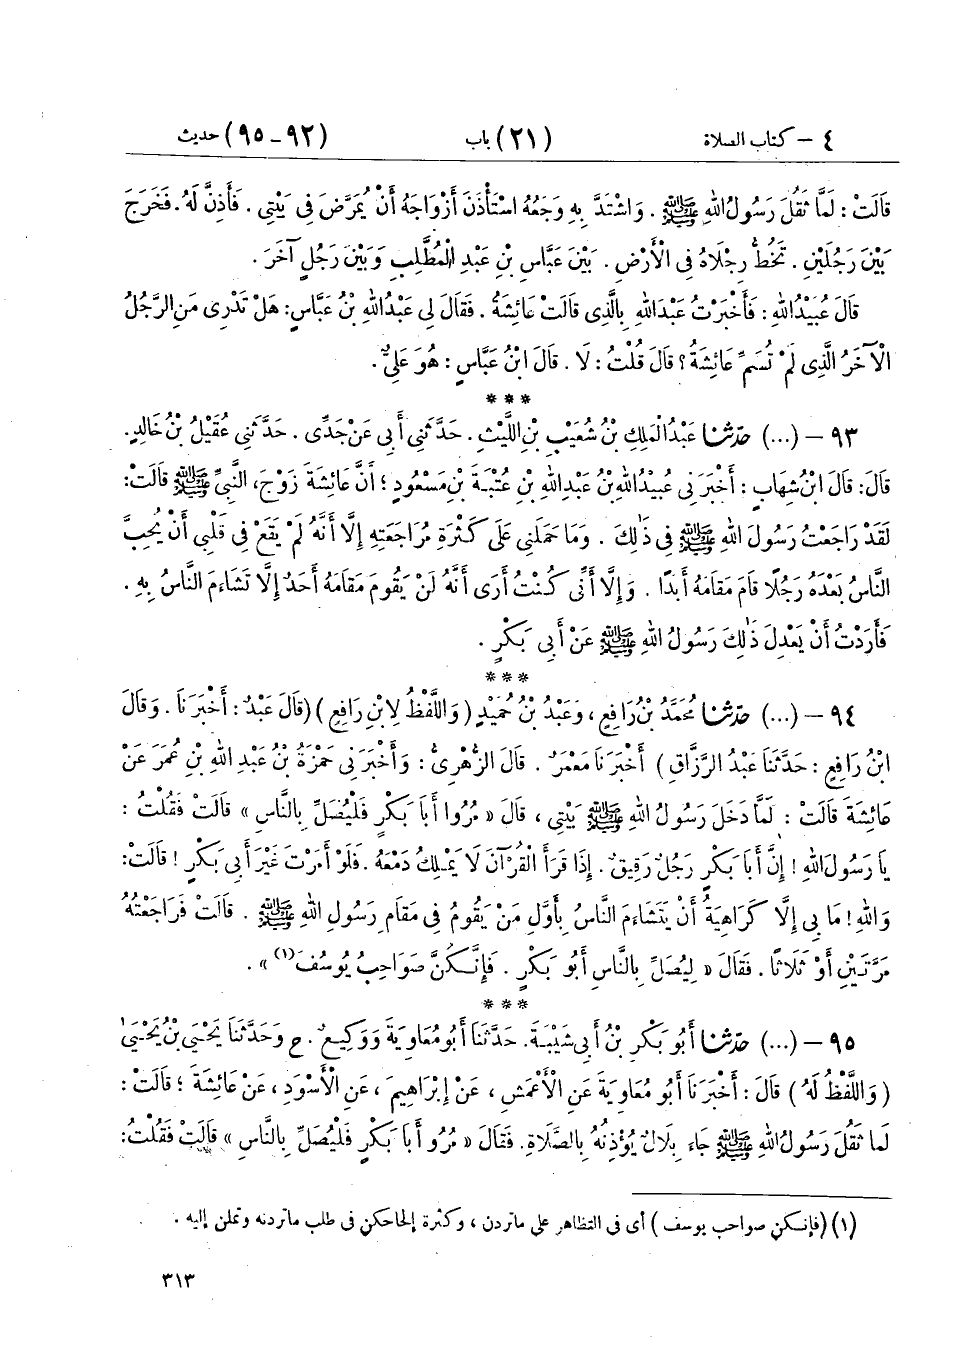 ٤ – كتاب الصلاة (٢١) باب (٩٢-٩٥) حديث
قَالَتْ: لَمَّا ثَقُلَ رَسُولُ اللهِ ﷺ. وَاشْتَدَّ بِهِ وَجَعُهُ اسْتَأْذَنَ أَزْوَاجَهُ أَنْ يُمَرَّضَ فِى بَيْتِي. فَأَذِنَّ لَهُ. فَخَرَجَ
بَيْنَ رَجُلَيْنِ. تَخُطُّ رِجْلَاهُ فِى الْأَرْضِ. بَيْنَ عَبَّاسِ بْنِ عَبْدِ الْمُطَّلِبِ وَبَيْنَ رَجُلٍ آخَرَ.
قَالَ عُبَيْدُ اللهِ: فَأَخْبَرْتُ عَبْدَ اللهِ بِالَّذِى قَالَتْ عَائِشَةُ. فَقَالَ لِى عَبْدُ اللهِ بْنُ عَبَّاسٍ: هَلْ تَدْرِى مَنِ الرَّجُلُ
الْآخَرُ الَّذِى لَمْ تُسَمِّ عَائِشَةُ؟ قَالَ قُلْتُ: لَا. قَالَ ابْنُ عَبَّاسٍ: هُوَ عَلِيٌّ.
***
٩٣ – (...) حدّثنا عَبْدُ الْمَلِكِ بْنُ شُعَيْبِ بْنِ اللَّيْثِ. حَدَّثَنِي أَبِي عَنْ جَدِّى. حَدَّثَنِي عُقَيْلُ بْنُ خَالِدٍ.
قَالَ: قَالَ ابْنُ شِهَابٍ: أَخْبَرَنِي عُبَيْدُ اللهِ بْنُ عَبْدِ اللهِ بْنِ عُتْبَةَ بْنِ مَسْعُودٍ؛ أَنَّ عَائِشَةَ زَوْجَ، النَّبِيِّ ﷺ قَالَتْ:
لَقَدْ رَاجَعْتُ رَسُولَ اللهِ ﷺ فِى ذٰلِكَ. وَمَا حَمَلَنِي عَلَى كَثْرَةِ مُرَاجَعَتِهِ إِلَّا أَنَّهُ لَمْ يَقَعْ فِى قَلْبِي أَنْ يُحِبَّ
النَّاسُ بَعْدَهُ رَجُلًا قَامَ مَقَامَهُ أَبَدًا. وَإِلَّا أَنِّى كُنْتُ أَرَى أَنَّهُ لَنْ يَقُومَ مَقَامَهُ أَحَدٌ إِلَّا تَشَاءَمَ النَّاسُ بِهِ.
فَأَرَدْتُ أَنْ يَعْدِلَ ذٰلِكَ رَسُولُ اللهِ ﷺ عَنْ أَبِى بَكْرٍ.
***
٩٤ – (...) حدّثنا مُحَمَّدُ بْنُ رَافِعٍ، وَعَبْدُ بْنُ حُمَيْدٍ (وَاللَّفْظُ لِابْنِ رَافِعٍ) (قَالَ عَبْدٌ: أَخْبَرَنَا. وَقَالَ
ابْنُ رَافِعٍ: حَدَّثَنَا عَبْدُ الرَّزَّاقِ) أَخْبَرَنَا مَعْمَرٌ. قَالَ الزُّهْرِىُّ: وَأَخْبَرَنِى حَمْزَةُ بْنُ عَبْدِ اللهِ بْنِ عُمَرَ عَنْ
عَائِشَةَ قَالَتْ: لَمَّا دَخَلَ رَسُولُ اللهِ ﷺ بَيْتِى، قَالَ «مُرُوا أَبَا بَكْرٍ فَلْيُصَلِّ بِالنَّاسِ» قَالَتْ فَقُلْتُ:
يَا رَسُولَ اللهِ! إِنَّ أَبَا بَكْرٍ رَجُلٌ رَقِيقٌ. إِذَا قَرَأَ الْقُرْآنَ لَا يَمْلِكُ دَمْعَهُ. فَلَوْ أَمَرْتَ غَيْرَ أَبِى بَكْرٍ! قَالَتْ:
وَاللهِ! مَا بِى إِلَّا كَرَاهِيَةُ أَنْ يَتَشَاءَمَ النَّاسُ بِأَوَّلِ مَنْ يَقُومُ فِى مَقَامِ رَسُولِ اللهِ ﷺ. قَالَتْ فَرَاجَعْتُهُ
مَرَّتَيْنِ أَوْ ثَلَاثًا. فَقَالَ «لِيُصَلِّ بِالنَّاسِ أَبُو بَكْرٍ. فَإِنَّكُنَّ صَوَاحِبُ يُوسُفَ(١)».
***
٩٥ – (...) حدّثنا أَبُو بَكْرِ بْنُ أَبِى شَيْبَةَ. حَدَّثَنَا أَبُو مُعَاوِيَةَ وَوَكِيعٌ. ح وَحَدَّثَنَا يَحْيَى بْنُ يَحْيَىٰ
(وَاللَّفْظُ لَهُ) قَالَ: أَخْبَرَنَا أَبُو مُعَاوِيَةَ عَنِ الْأَعْمَشِ، عَنْ إِبْرَاهِيمَ، عَنِ الْأَسْوَدِ، عَنْ عَائِشَةَ؛ قَالَتْ:
لَما ثَقُلَ رَسُولُ اللهِ ﷺ جَاءَ بِلَالٌ يُؤْذِنُهُ بِالصَّلَاةِ. فَقَالَ «مُرُو أَبَا بَكْرٍ فَلْيُصَلِّ بِالنَّاسِ» قَالَتْ فَقُلْتُ:
(١) (فإنكن صواحب يوسف) أى فى التظاهر على ماتردن، وكثرة إلحاحكن فى طلب ماتردنه وتملن إليه.
٣١٣